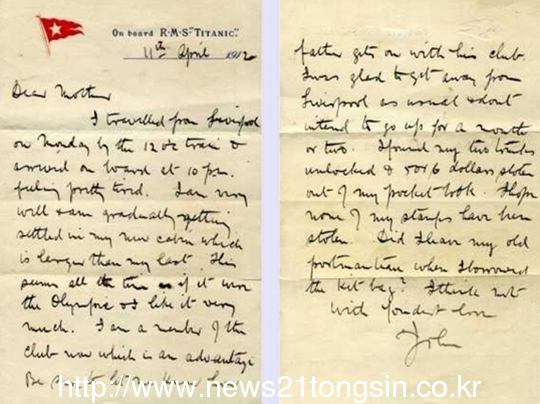 On board R·M·S "TITANIC".
11th April 1912
Dear Mother
I travelled from Liverpool
on Monday by the 12 oc train &
arrived on board at 10 pm.
feeling pretty tired. I am very
well & am gradually getting
settled in my new cabin which
is larger than my last. This
seems all the time as if it were
the Olympic & I like it very
much. I am a member of the
club now which is an advantage
Be sure to let me know how
father gets on with his club.
I was glad to get away from
Liverpool as usual & dont
intend to go up for a month
or two. I found my two trunks
unlocked & 5 or 6 dollars stolen
out of my pocket book. I hope
none of my stamps have been
stolen. Did I leave my old
portmanteau when I borrowed
the kit bag? I think not
with fondest love
John
http://www.news21tongsin.co.kr